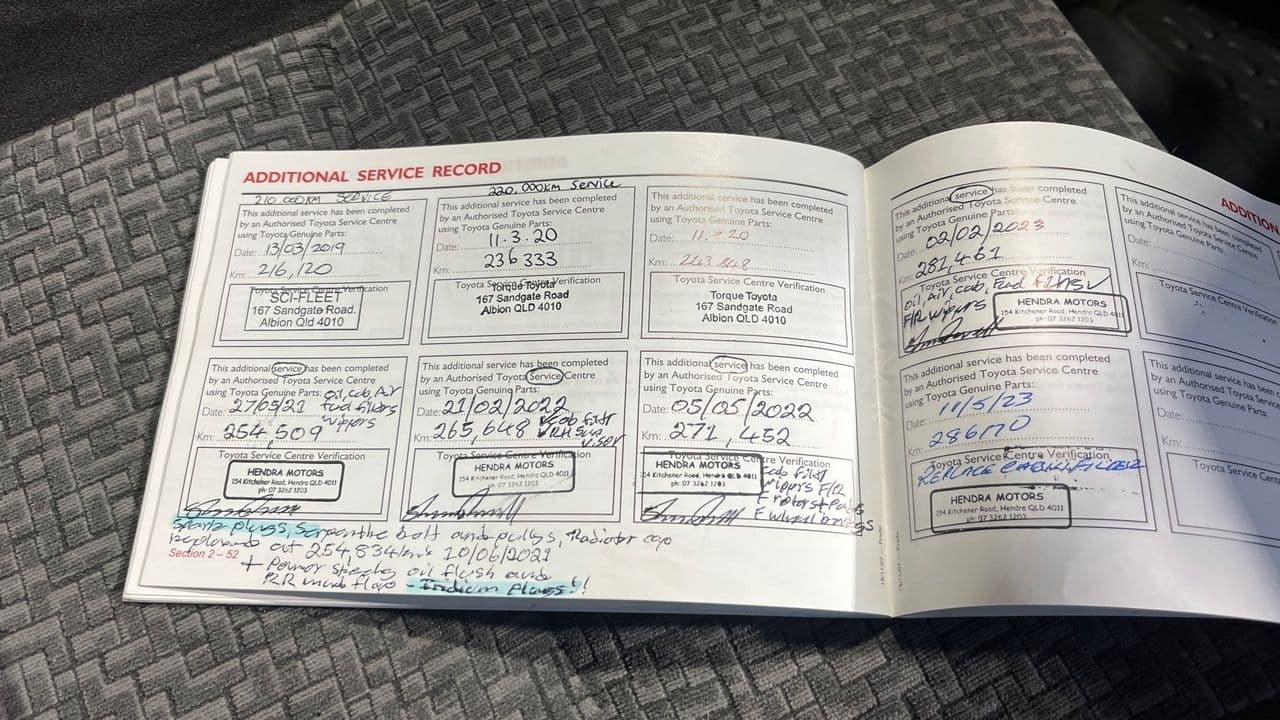 ADDITIONAL SERVICE RECORD
210 000KM SERVICE
This additional service has been completed
by an Authorised Toyota Service Centre
using Toyota Genuine Parts:
Date: 13/03/2019
Km: 216,120
Toyota Service Centre Verification
SCI-FLEET
167 Sandgate Road.
Albion Qld 4010
220,000km Service
This additional service has been completed
by an Authorised Toyota Service Centre
using Toyota Genuine Parts:
Date: 11.3.20
Km: 236333
Toyota Service Centre Verification
Torque Toyota
167 Sandgate Road
Albion QLD 4010
This additional service has been completed
by an Authorised Toyota Service Centre
using Toyota Genuine Parts:
Date: 11.9.20
Km: 243,848
Toyota Service Centre Verification
Torque Toyota
167 Sandgate Road
Albion QLD 4010
This additional service has been completed
by an Authorised Toyota Service Centre
using Toyota Genuine Parts: oil, cab, Air
Date: 27/05/21 fuel filters
wipers
Km: 254,509
Toyota Service Centre Verification
HENDRA MOTORS
154 Kitchener Road, Hendra QLD 4011
ph: 07 3262 1203
This additional service has been completed
by an Authorised Toyota Service Centre
using Toyota Genuine Parts:
Date: 21/02/2022
Km: 265,648
Toyota Service Centre Verification
HENDRA MOTORS
154 Kitchener Road, Hendra QLD 4011
ph: 07 3262 1203
This additional service has been completed
by an Authorised Toyota Service Centre
using Toyota Genuine Parts:
Date: 05/05/2022
Km: 271,452
Toyota Service Centre Verification
HENDRA MOTORS
154 Kitchener Road, Hendra QLD 4011
ph: 07 3262 1203
cab filt
wipers F/R
F rotors + Pads
F wheel
Spark plugs, Serpentine belt and pulleys, Radiator cap
replaced at 254,834 10/06/2021
+ Power oil flush and
mud flap - Iridium Plugs!!
Section 2 – 52
ADDITION
This additional service has been completed
by an Authorised Toyota Service Centre
using Toyota Genuine Parts:
Date: 02/02/2023
Km: 281,461
Toyota Service Centre Verification
oil, Air, cab, Fuel
F/R wipers
HENDRA MOTORS
154 Kitchener Road, Hendra QLD 4011
ph: 07 3262 1203
This additional service has been completed
by an Authorised Toyota Service Centre
using Toyota Genuine Parts:
Date: 11/5/23
Km: 286170
Toyota Service Centre Verification
REPLACE CABIN FILTER
HENDRA MOTORS
154 Kitchener Road, Hendra QLD 4011
ph: 07 3262 1203
This additional service has been completed
by an Authorised Toyota Service
using Toyota Genuine Parts:
Date:
Km:
Toyota Service Cent
This additional service has
by an Authorised Toyota Serv
using Toyota Genuine
Date:
Km:
Toyota Service Cent